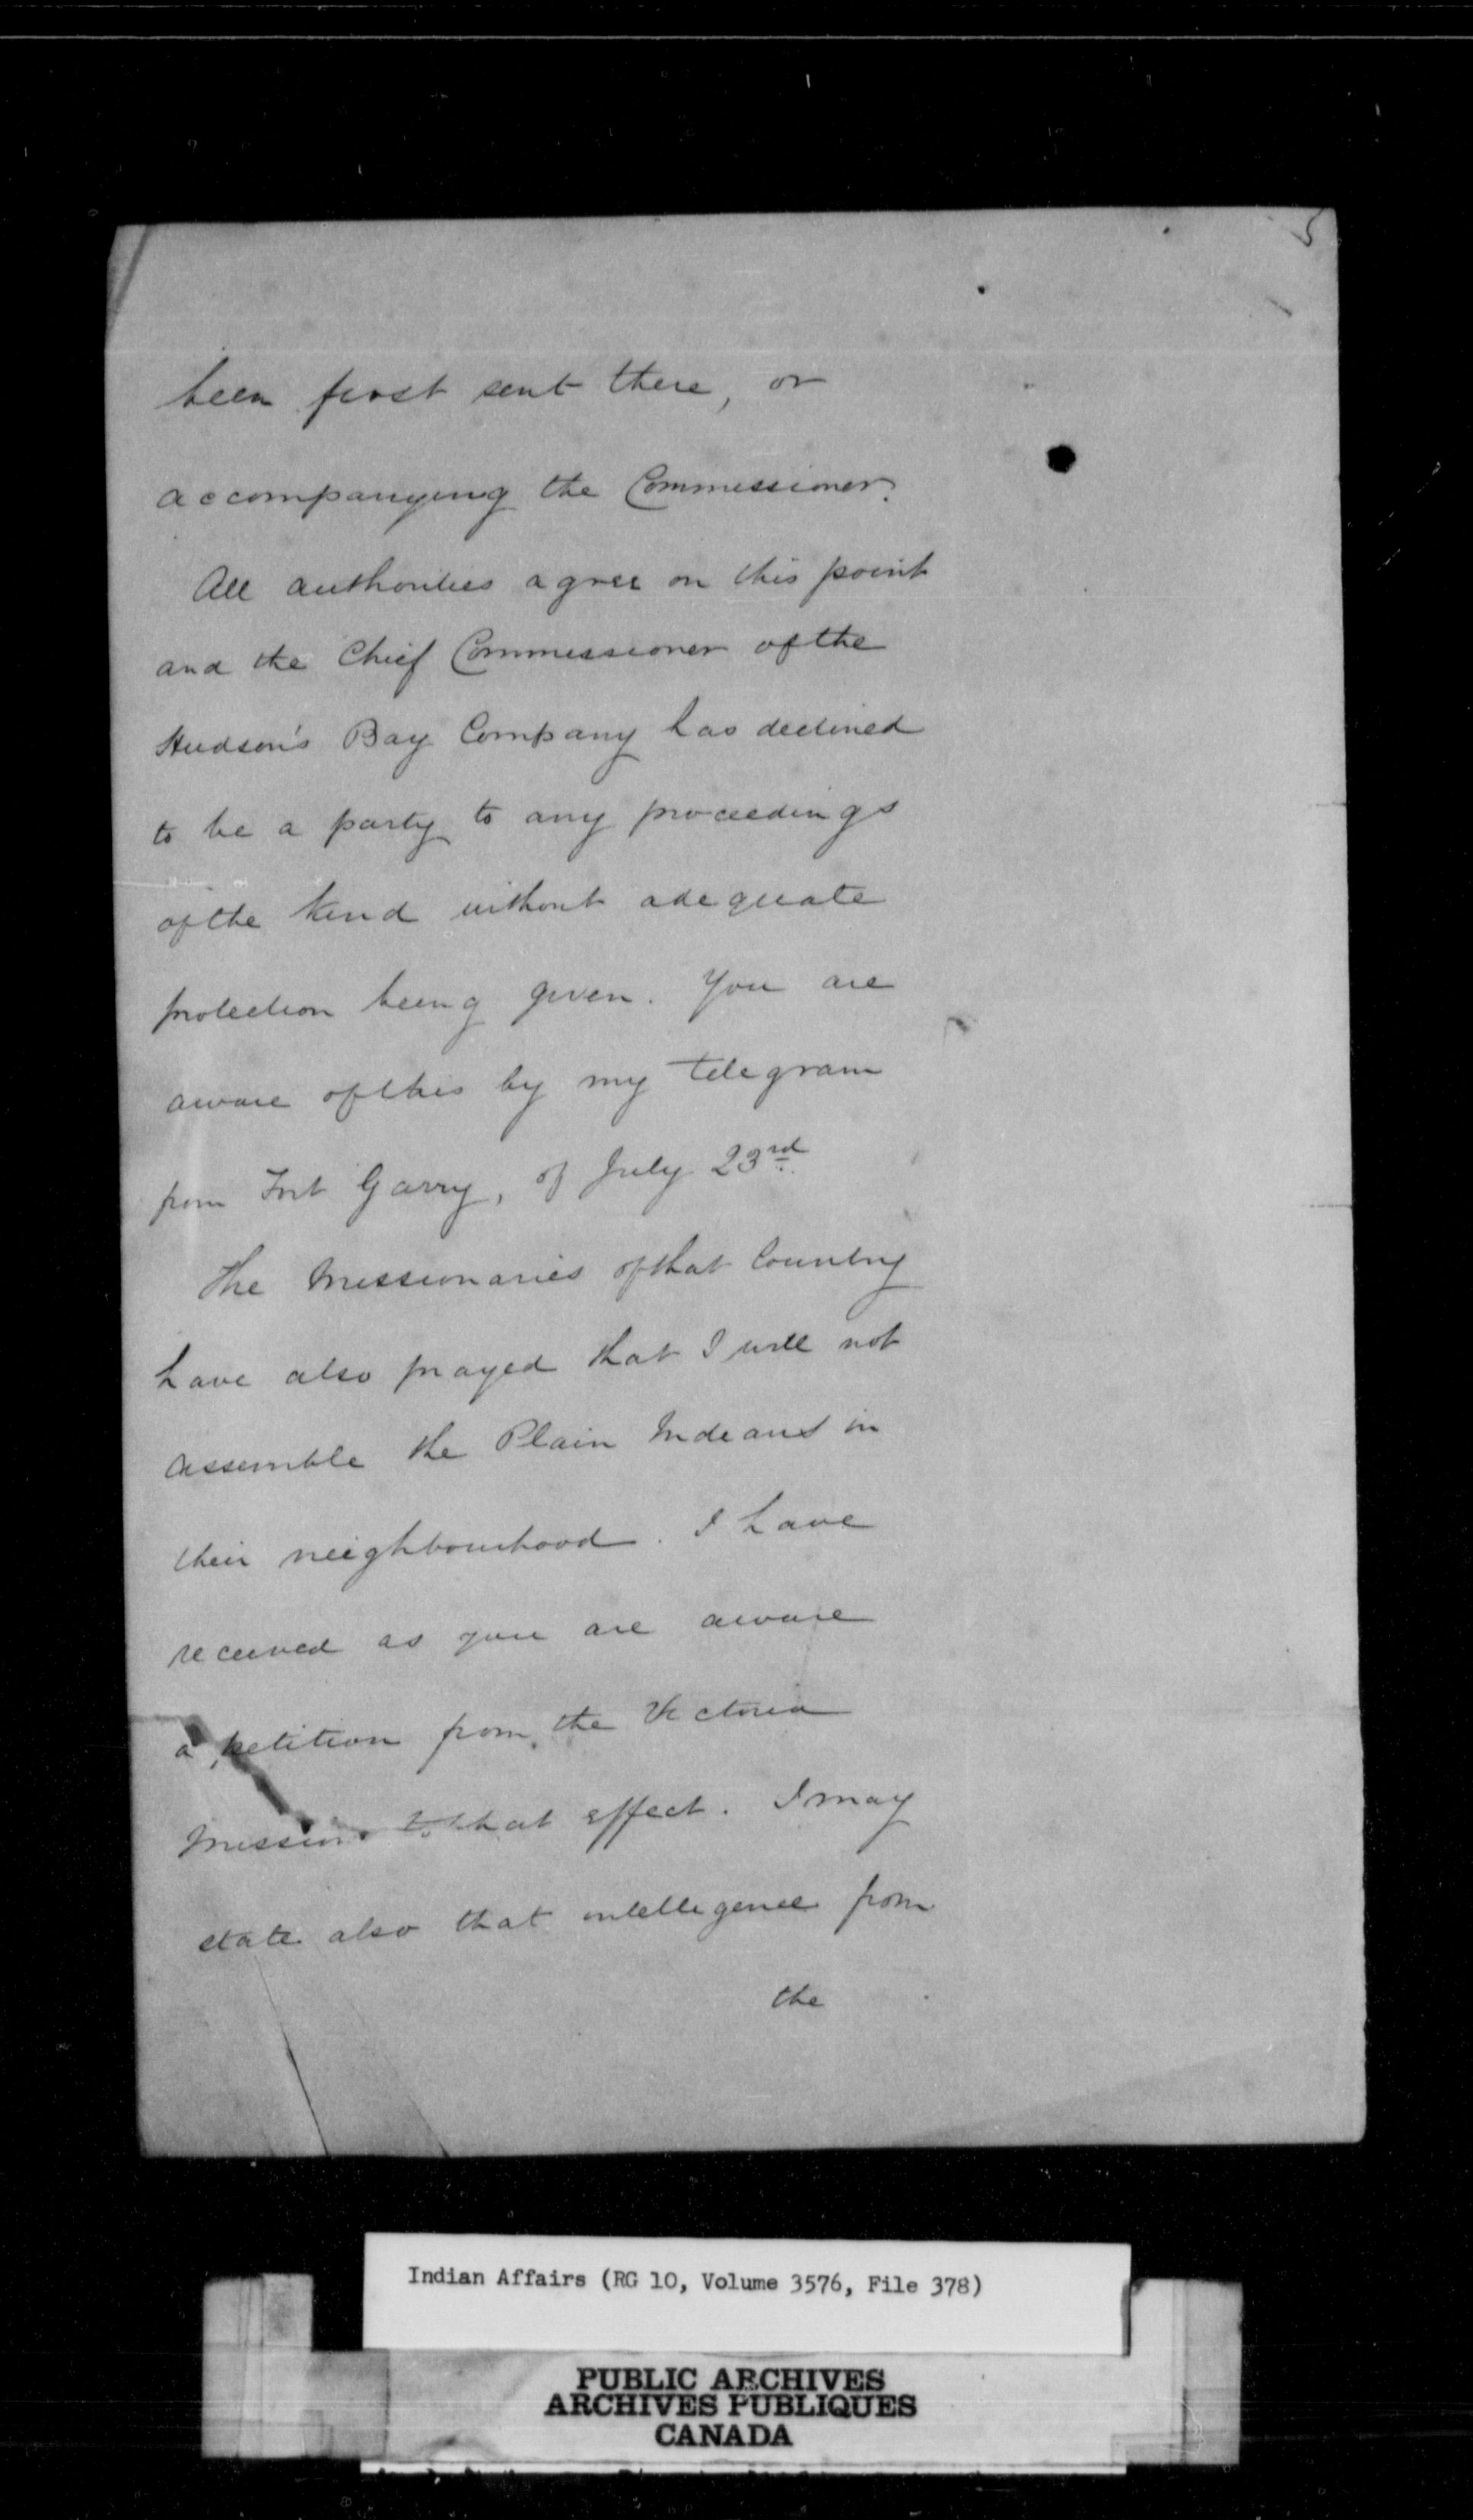 5
been first sent there, or
accompanying the Commissioner.
All authorities agree on this point
and the Chief Commissioner of the
Hudson's Bay Company has declined
to be a party to any proceedings
of the kind without adequate
protection being given. You are
aware of this by my telegram
from Fort Garry, of July 23rd.
The Missionaries of that Country
have also prayed that I will not
assemble the Plain Indians in
their neighbourhood. I have
received as you are aware
a petition from the Victoria
Mission to that effect. I may
state also that intelligence from
the
Indian Affairs (RG 10, Volume 3576, File 378)
PUBLIC ARCHIVES
ARCHIVES PUBLIQUES
CANADA